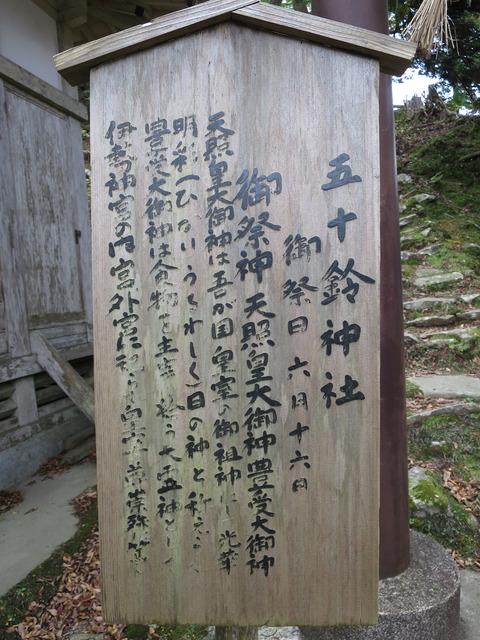 五十鈴神社
御祭日 六月十六日
御祭神 天照皇大御神豊受大御神
天照皇大御神は吾が国皇室の御祖神にし 光華
明彩(ひないうくわしく)日の神と称
豊受大御神は食物を主宰 給う大霊神とし
伊勢神宮の内宮外宮に祀ら 崇